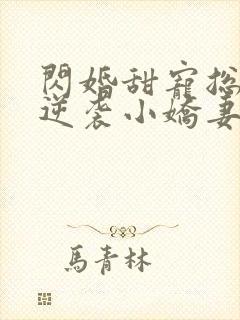 閃婚甜寵總
逆袭小嬌妻
馬青林